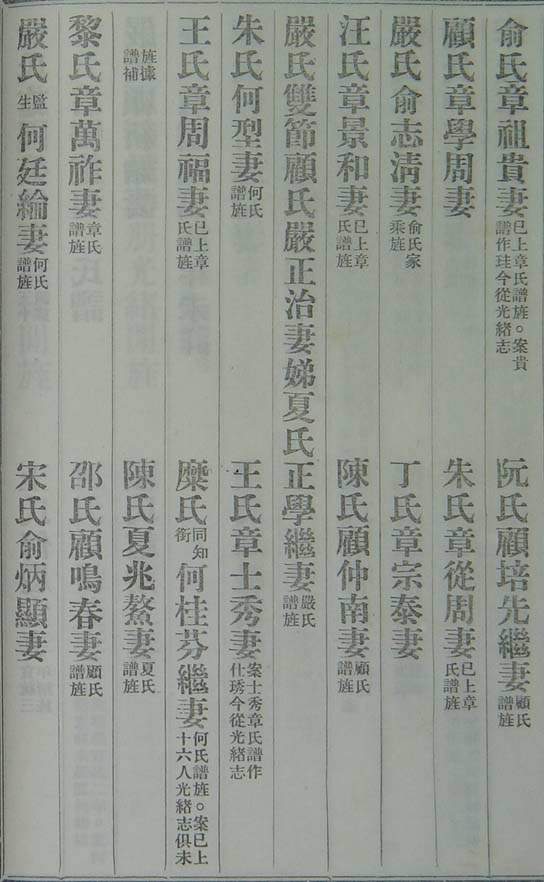 俞氏章祖貴妻已上章氏譜旌○案貴譜作珪今從光緒志 阮氏顧培先繼妻顧氏譜旌
顧氏章學周妻 朱氏章從周妻已上章氏譜旌
嚴氏俞志淸妻俞氏家乘旌 丁氏章宗泰妻
汪氏章景和妻已上章氏譜旌 陳氏顧仲南妻顧氏譜旌
嚴氏雙節顧氏嚴正治妻娣夏氏正學繼妻嚴氏譜旌
朱氏何型妻何氏譜旌 王氏章士秀妻案士秀章氏譜作仕琇今從光緒志
王氏章周福妻已上章氏譜旌 糜氏同知銜何桂芬繼妻何氏譜旌○案已上十六人光緒志俱未
旌據譜補 陳氏夏兆鰲妻夏氏譜旌
黎氏章萬祚妻章氏譜旌 邵氏顧鳴春妻顧氏譜旌
嚴氏監生何廷綸妻何氏譜旌 宋氏俞炳顯妻